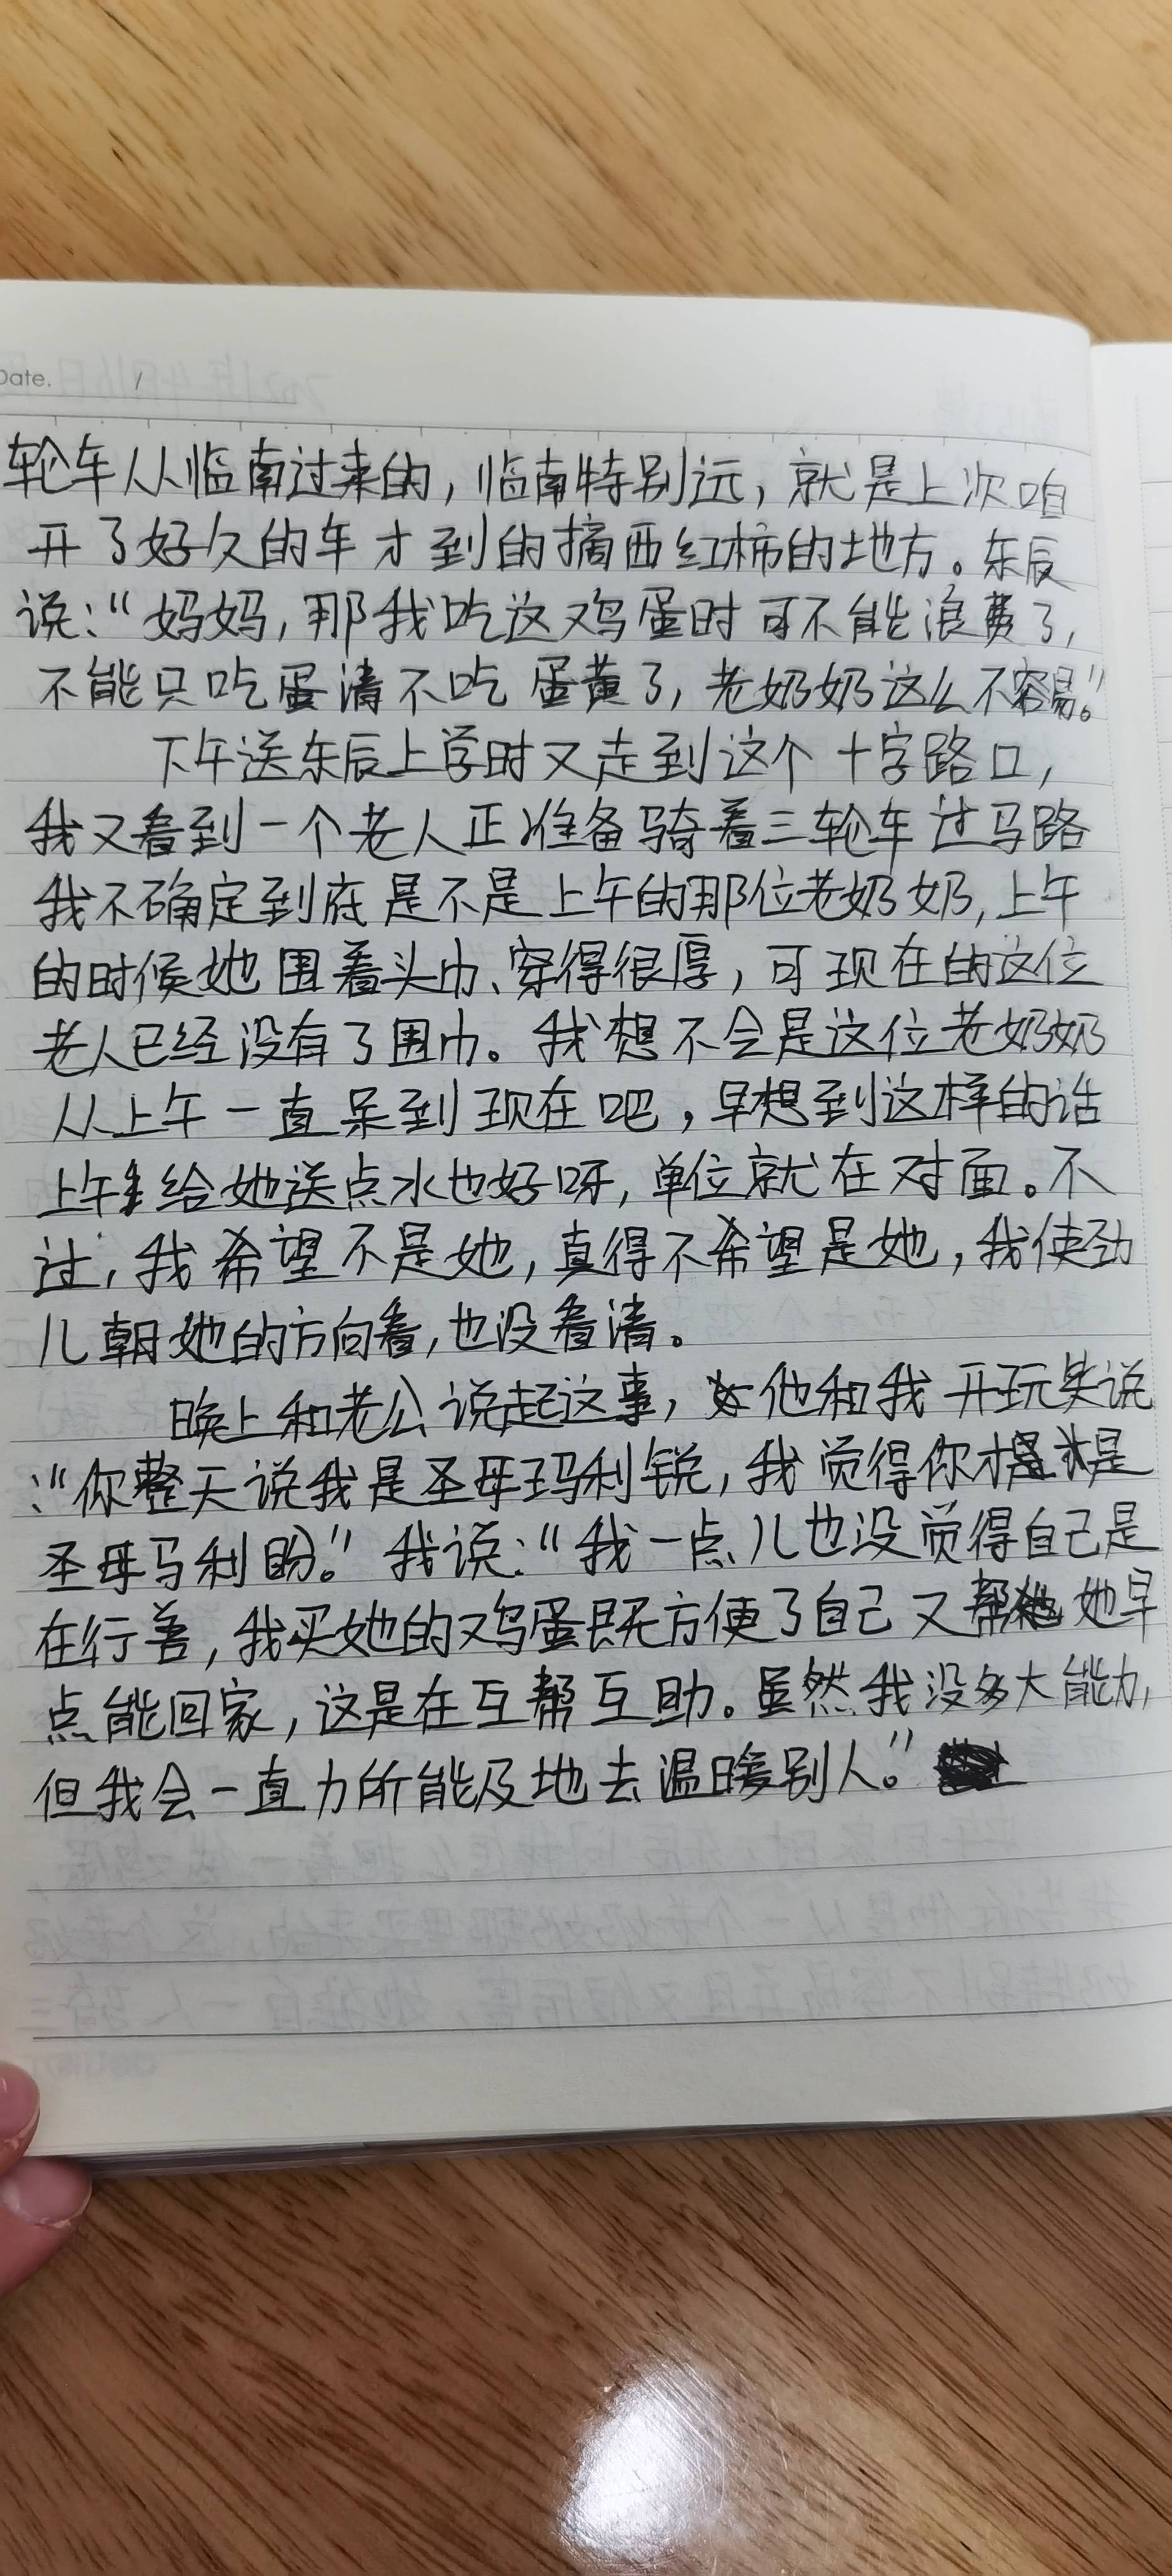 Date. /
轮车从临南过来的，临南特别远，就是上次咱
开了好久的车才到的摘西红柿的地方。东辰
说：“妈妈，那我吃这鸡蛋时可不能浪费了，
不能只吃蛋清不吃蛋黄了，老奶奶这么不容易。”
下午送东辰上学时又走到这个十字路口，
我又看到一个老人正准备骑着三轮车过马路
我不确定到底是不是上午的那位老奶奶，上午
的时候她围着头巾、穿得很厚，可现在的这位
老人已经没有了围巾。我想不会是这位老奶奶
从上午一直呆到现在吧，早想到这样的话
上午给她送点水也好呀，单位就在对面。不
过，我希望不是她，真得不希望是她，我使劲
儿朝她的方向看，也没看清。
晚上和老公说起这事，他和我开玩笑说
：“你整天说我是圣母玛利锐，我觉得你才是
圣母马利盼。”我说：“我一点儿也没觉得自己是
在行善，我买她的鸡蛋既方便了自己又帮她早
点能回家，这是在互帮互助。虽然我没多大能力，
但我会一直力所能及地去温暖别人。”